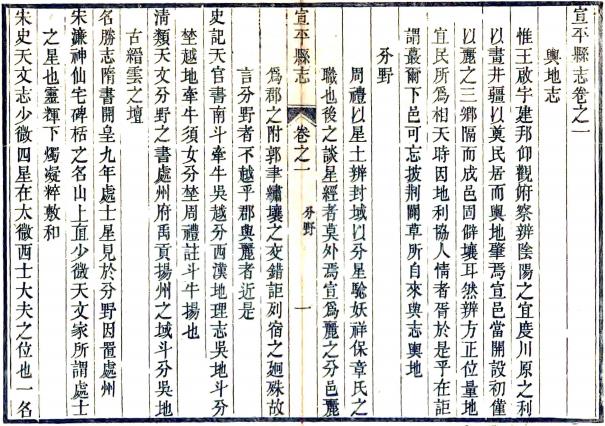 宣平縣志卷之一
輿地志
惟王啟宇建邦仰觀俯察辨陰陽之宜度川原之利
以畫井疆以奠民居而輿地肇焉宣邑當開設初僅
以麗之三鄉隔而成邑固僻壤耳然辨方正位量地
宜民所爲相天時因地利協人情者胥於是乎在詎
謂蕞爾下邑可忘披荆闢草所自來輿志輿地
分野
周禮以星土辨封域以分星騐妖祥保章氏之
職也後之談星經者莫外焉宣爲麗之分邑麗
宣平縣志
卷之一
分野
一
爲郡之附郭聿繡壤之交錯詎列宿之廻殊故
言分野者不越乎郡輿麗者近是
史記天官書南斗牽牛吳越分西漢地理志吳地斗分
埜越地牽牛須女分埜周禮註斗牛揚也
清類天文分野之書處州府禹貢揚州之域斗分吳地
古縉雲之壇
名勝志隋書開皇九年處士星見於分野因置處州
宋濂神仙宅碑栝之名山上直少微天文家所謂處士
之星也靈輝下燭凝粹敷和
宋史天文志少微四星在太微西士大夫之位也一名